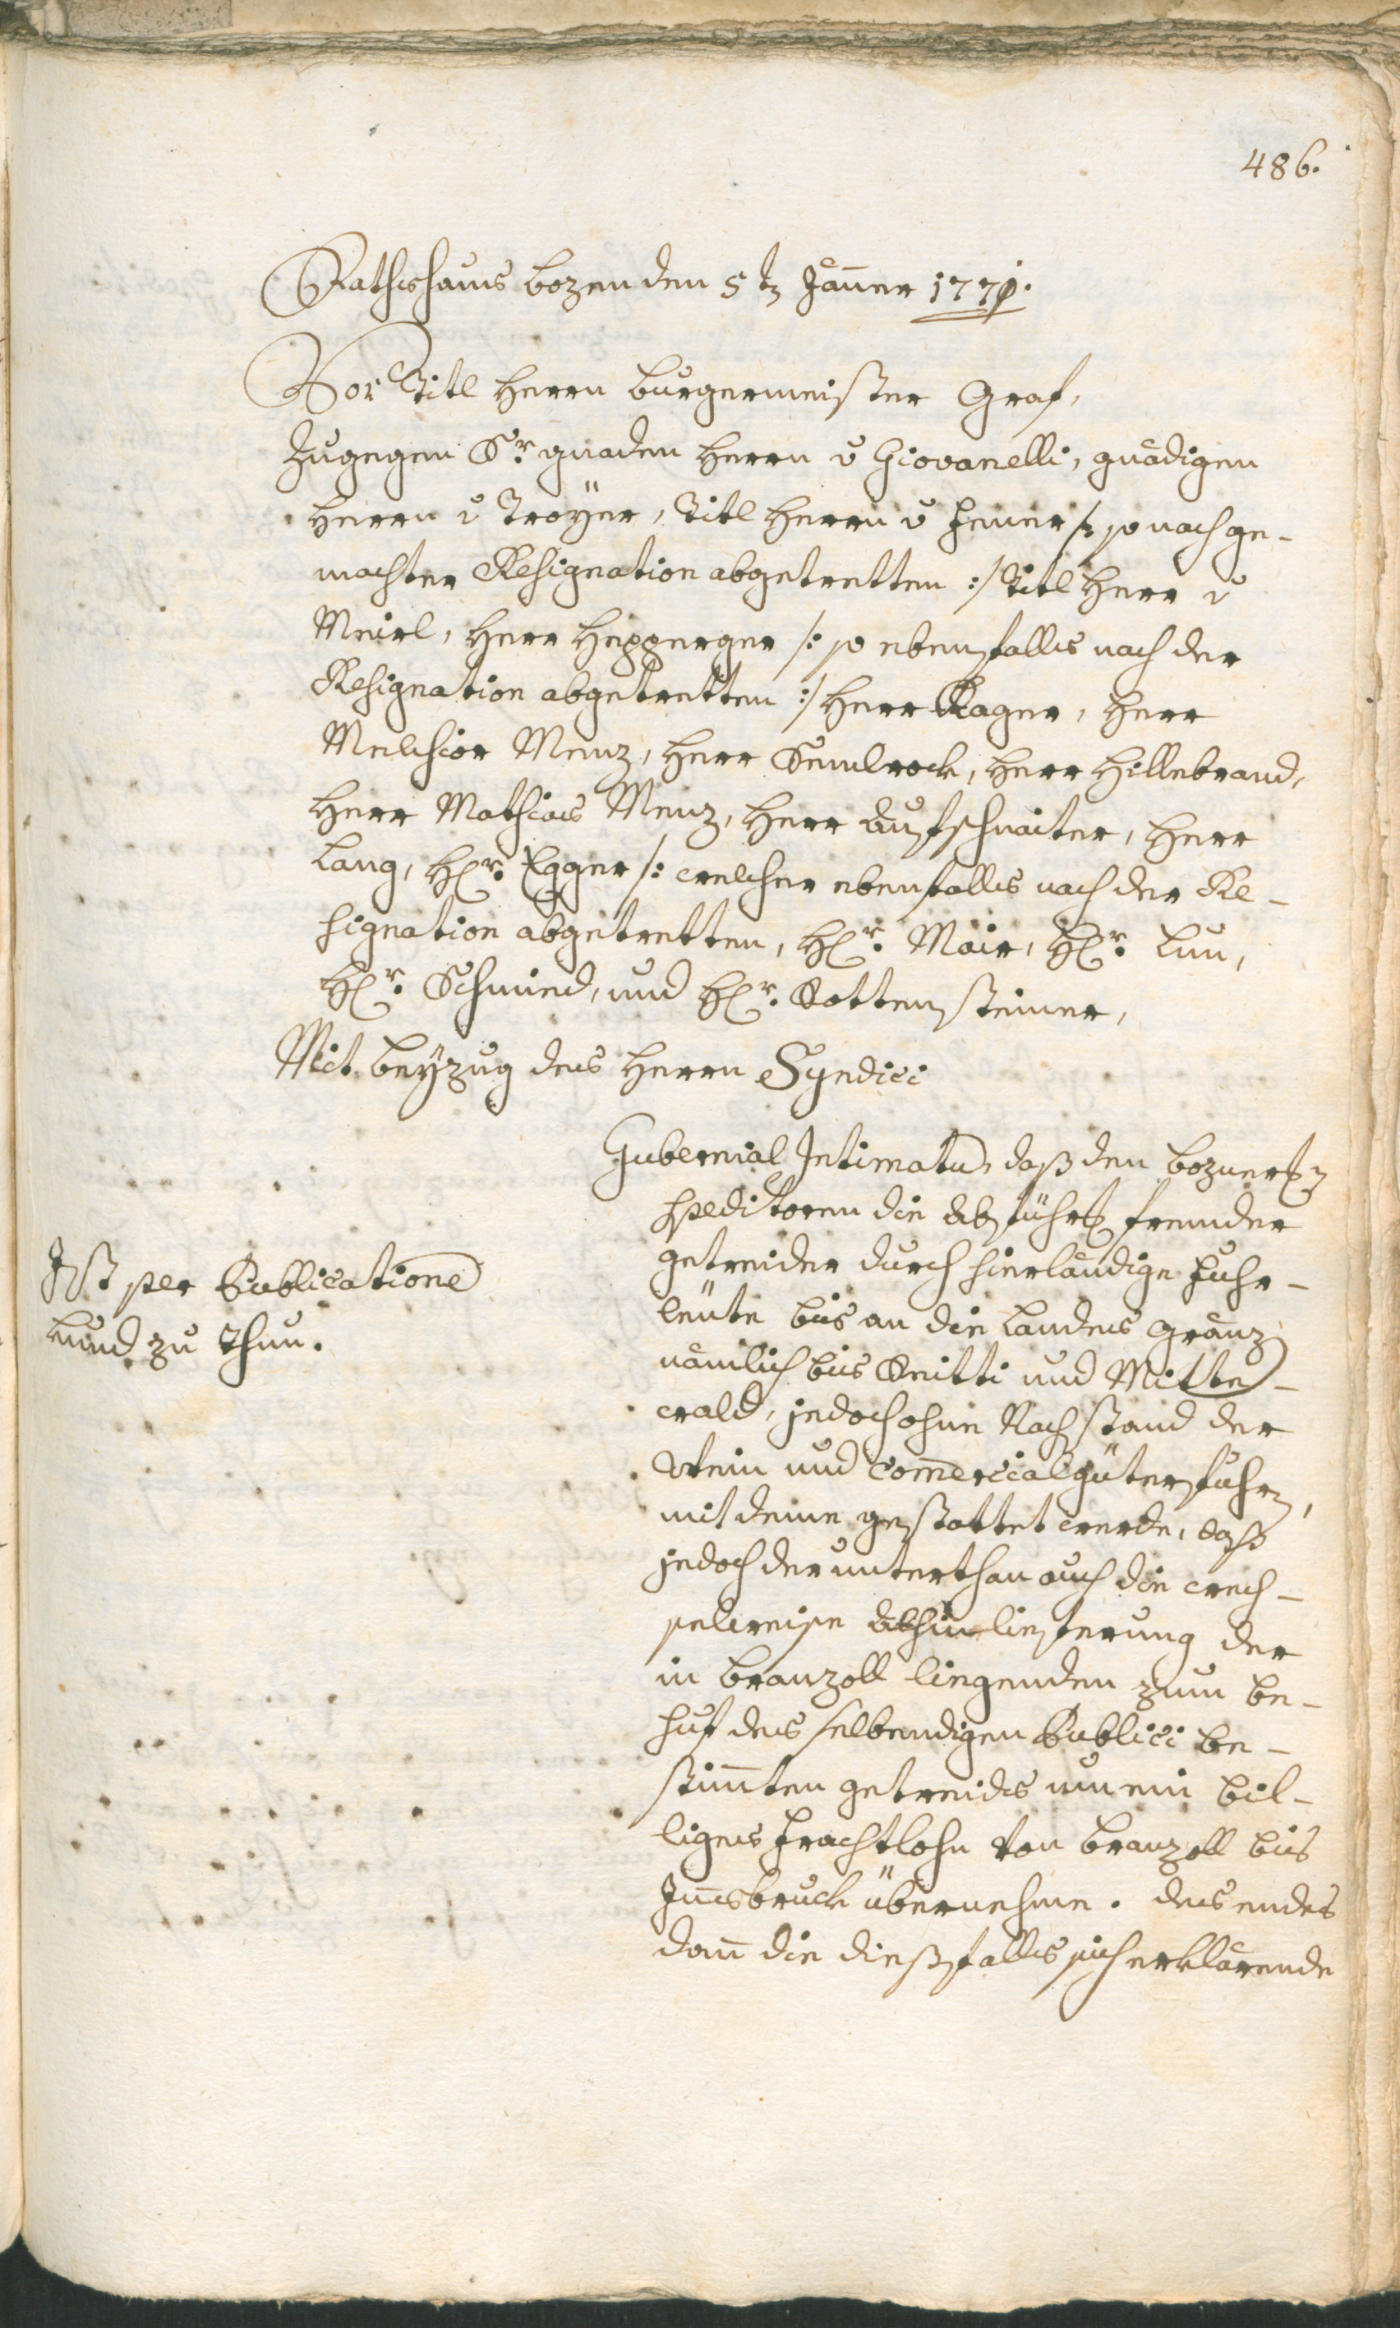 486.
Rathshaus Bozen den 5t Jäner 1771.
Vor Titl Herrn Burgermeister Graf,
zugegen Sr. gnaden Herrn v Giovanelli, gnädigen
Herrn v Troÿer, Titl Herrn v Hener /: so nach ge-
machter Resignation abgetretten :/ Titl Herr v
Meirl, Herr Hepperger /: so ebenfalls nach der
Resignation abgetretten :/ Herr Kager, Herr
Melchior Menz, Herr Semlrock, Herr Hillebrand,
Herr Mathias Menz, Herr Aufschnaiter, Herr
Lang, H[r. Egger /: welcher ebenfalls nach der Re-
signation abgetretten, H[r. Mair, H[r. Lun,
H[r. Schmid, und H[r. Rottensteiner,
Mit beÿzug des Herrn Syndici
Gubernial Intimatum, daß den Boznerischen
Speditoren die Abfuhr fremder
getreider durch hierländige Fuhr-
leüte bis an die Landes gränz
nämlich bis Reitti und Mitten-
wald, jedoch ohne Rachstand der
Wein und Comercialgüterfuhrn,
mit deme gestattet werde, daß
jedoch der unterthan auch die wech-
selweise Abhin lieferung der
in Branzoll liegenden zum be-
huf des selbendigen Publici be-
stimten getreids um ein bil-
liges Frachtlohn von Branzoll bis
Innsbruck übernehme. des endes
dan die dießfalls sich erklärende
Ist per Publicationem
kund zu thun.